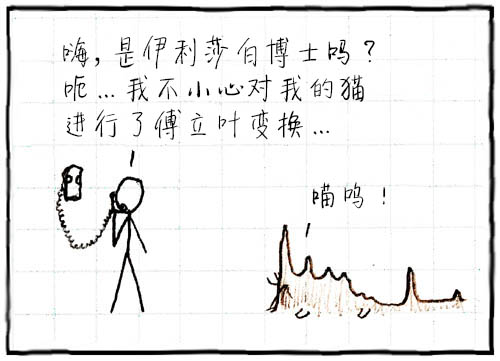 嗨,是伊利莎白博士吗?
呃...我不小心对我的猫
进行了傅立叶变换...
喵呜!